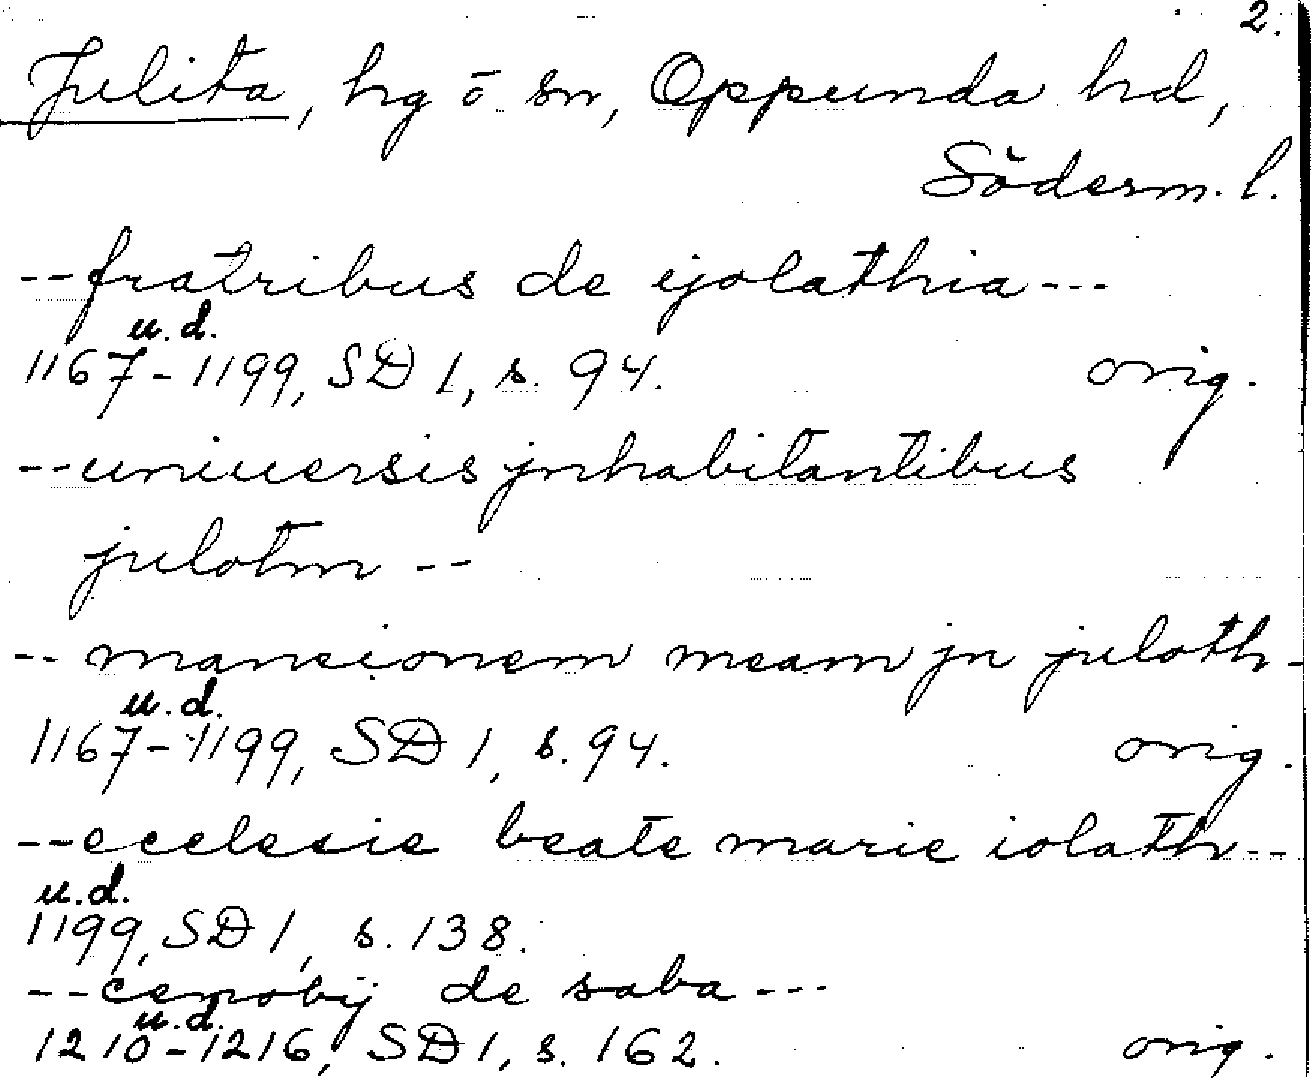 2.
Julita, hg o sn, Oppunda hd,
Söderm. l.
--fratribus de ejolathia---
u.d.
1167-1199, SD 1, s. 94. orig.
--uniuersis jnhabitantibus
julotm --
-- mancionem meam jn juloth-
u.d.
1167-1199, SD 1, s. 94. orig.
--ecclesie beate marie iolath--
u.d.
1199, SD 1, s. 138.
--cenobij de saba---
u.d.
1210-1216, SD 1, s. 162. orig.